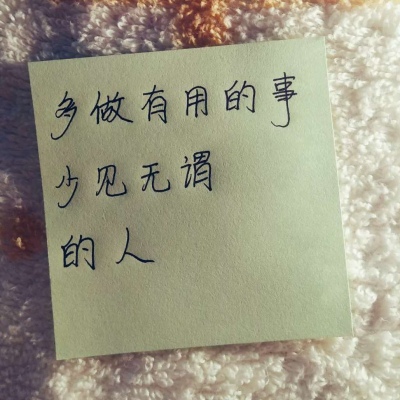 多做有用的事
少见无谓
的人